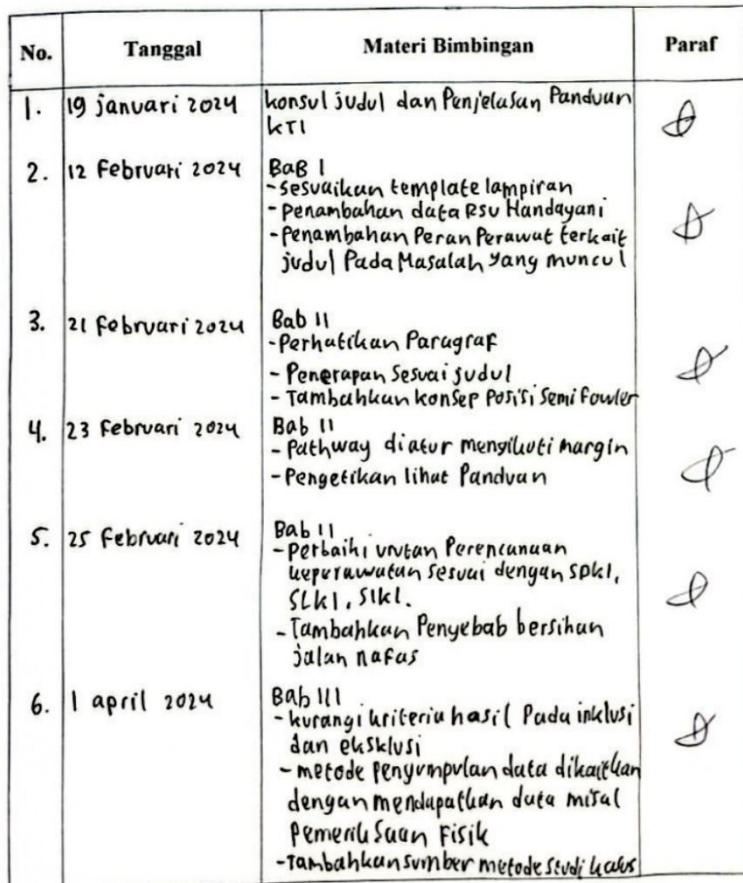 No. Tanggal Materi Bimbingan Paraf
1. 19 januari 2024 konsul judul dan Penjelasan Panduan
KTI
2. 12 Februari 2024 BaB I
- Sesuaikan template lampiran
- Penambahan data RSU Handayani
- Penambahan Peran Perawat terkait
judul Pada Masalah yang muncul
3. 21 Februari 2024 Bab II
- Perhatikan Paragraf
- Penerapan Sesuai judul
- Tambahkan konsep Posisi Semi Fowler
4. 23 Februari 2024 Bab II
- Pathway diatur mengikuti margin
- Pengetikan lihat Panduan
5. 25 Februari 2024 Bab II
- Perbaiki urutan Perencanaan
keperawatan sesuai dengan SDKI,
SLKI, SIKI.
- Tambahkan Penyebab bersihan
jalan nafas
6. 1 april 2024 Bab III
- kurangi kriteria hasil Pada inklusi
dan eksklusi
- metode pengumpulan data dikaitkan
dengan mendapatkan data misal
Pemeriksaan Fisik
- Tambahkan sumber metode studi kasus